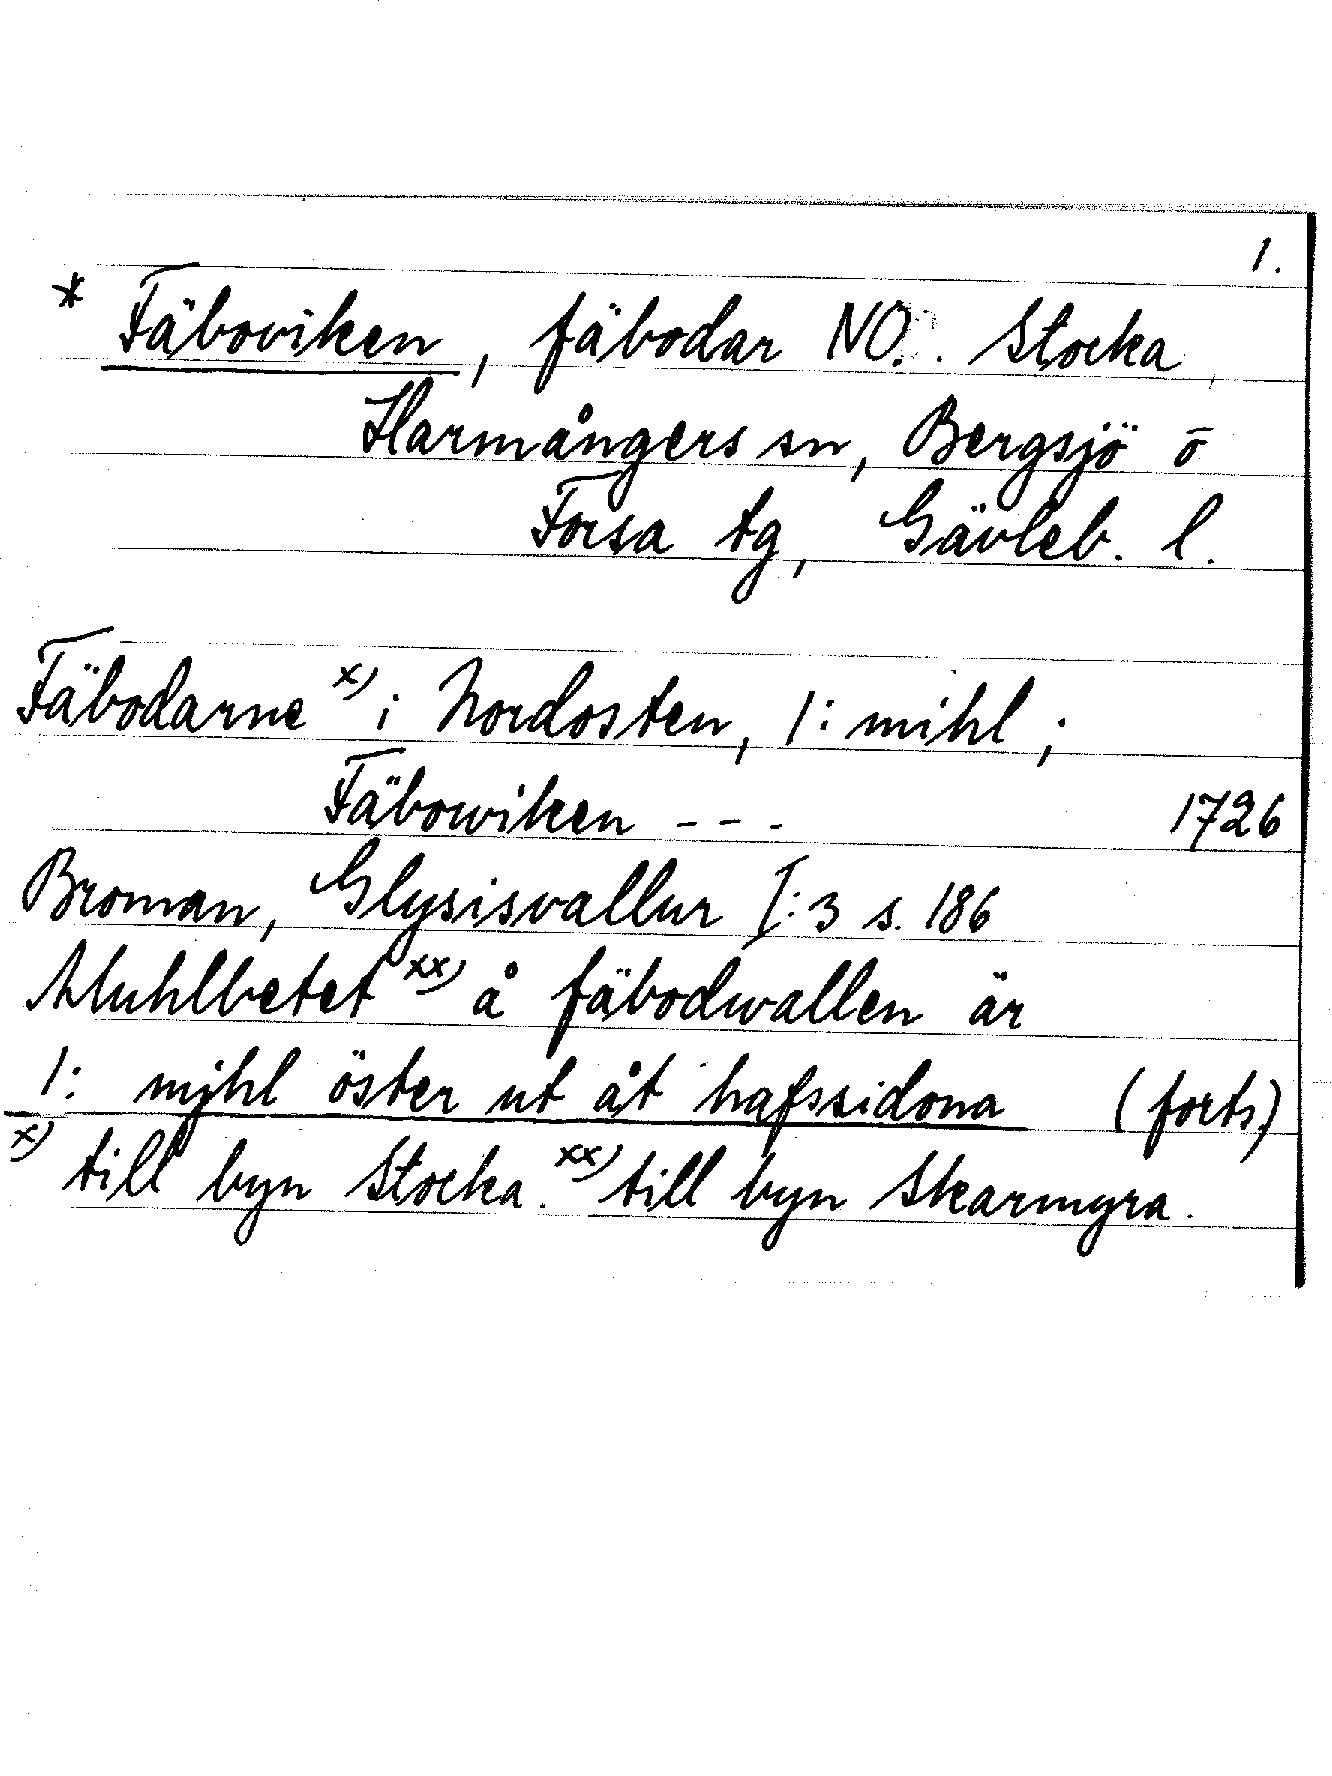 1.
* Fäboviken, fäbodar NO. Stocka
Harmångers sn, Bergsjö o
Forsa tg, Gävleb. l.
Fäbodarne x) i Nordosten, 1: mihl;
Fäbowiken --- 1726
Broman, Glysisvallur I:3 s. 186
Muhlbetet xx) å fäbodwallen är
1: mjhl öster ut åt hafssidona (forts)
x) till byn Stocka. xx) till byn Skarmyra.